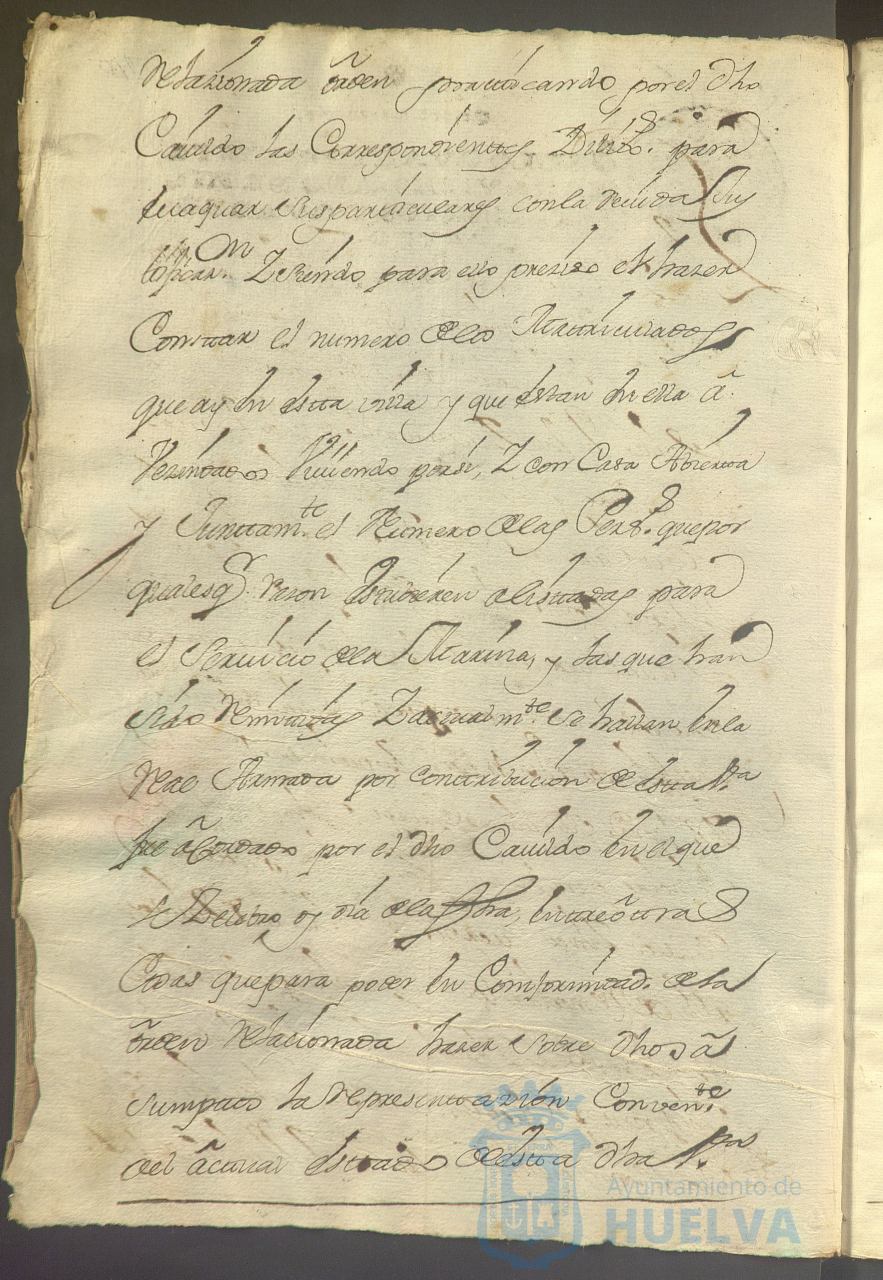 relazionada orden practicando por el dho
Cavildo las Correspondientes Dilix.s para
evaquar sus particulares con la devida Jus
tificaz.on Z siendo para ello preziso el hazer
Constar el numero de los Matriculados
que ay en esta villa y que estan en ella a
Vezindados Viviendo por si, Z con Casa Abierta
y Juntam.te el Numero de las Pers.s que por
qualesq.r razon estubieren alistadas para
el Servicio de la Marina, y las que han
sido remitidas Z actualm.te se hallan en la
Real Armada por contribucion de esta V.a
fue acordado por el dho Cavildo en el que
se zelebro oy dia de la fha, entre otras
Cosas que para poder en Conformidad de la
orden relacionada hazer sobre dho a
sumpto la representazión Conven.te
del actual estado de esta dha V.a
Ayuntamiento de
HUELVA